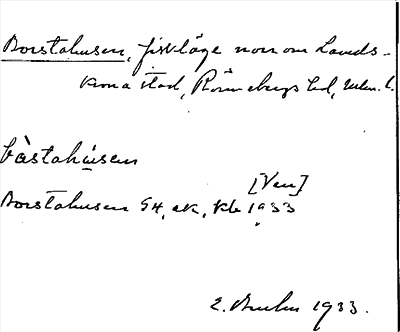 Borstahusen, fiskläge norr om Lands-
krona stad, Rönnebergs hd, Mlm. l.
bàstahúsen
[Ven]
Borstahusen GK, ek, Kb 1933
1933.